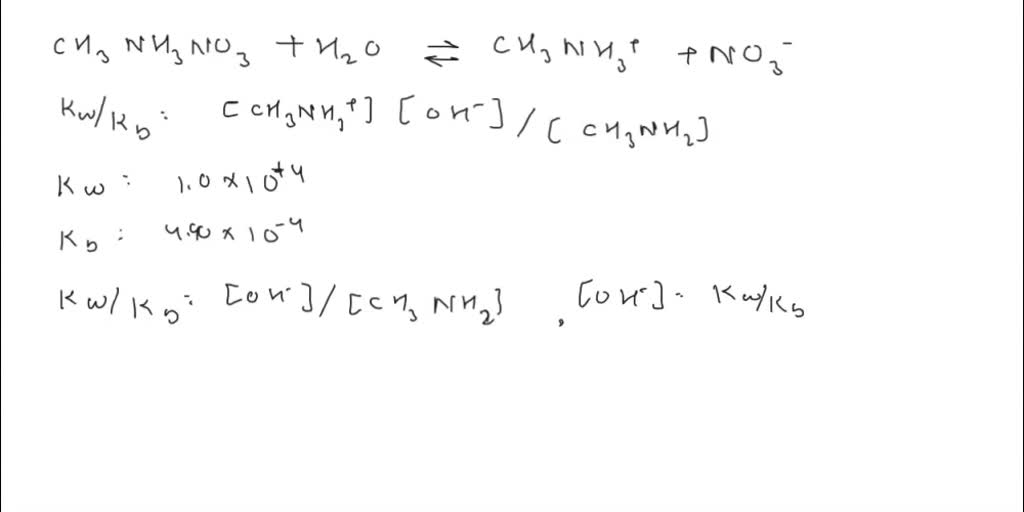 CH₃ NH₃NO₃ + H₂O ⇌ CH₃NH₃⁺ + NO₃⁻
Kw/Kb : [CH₃NH₃⁺] [OH⁻] / [CH₃NH₂]
Kw : 1.0 × 10⁺⁴
Kb : 4.90 × 10⁻⁴
Kw/Kb : [OH⁻] / [CH₃ NH₂} , [OH⁻] = Kw/Kb